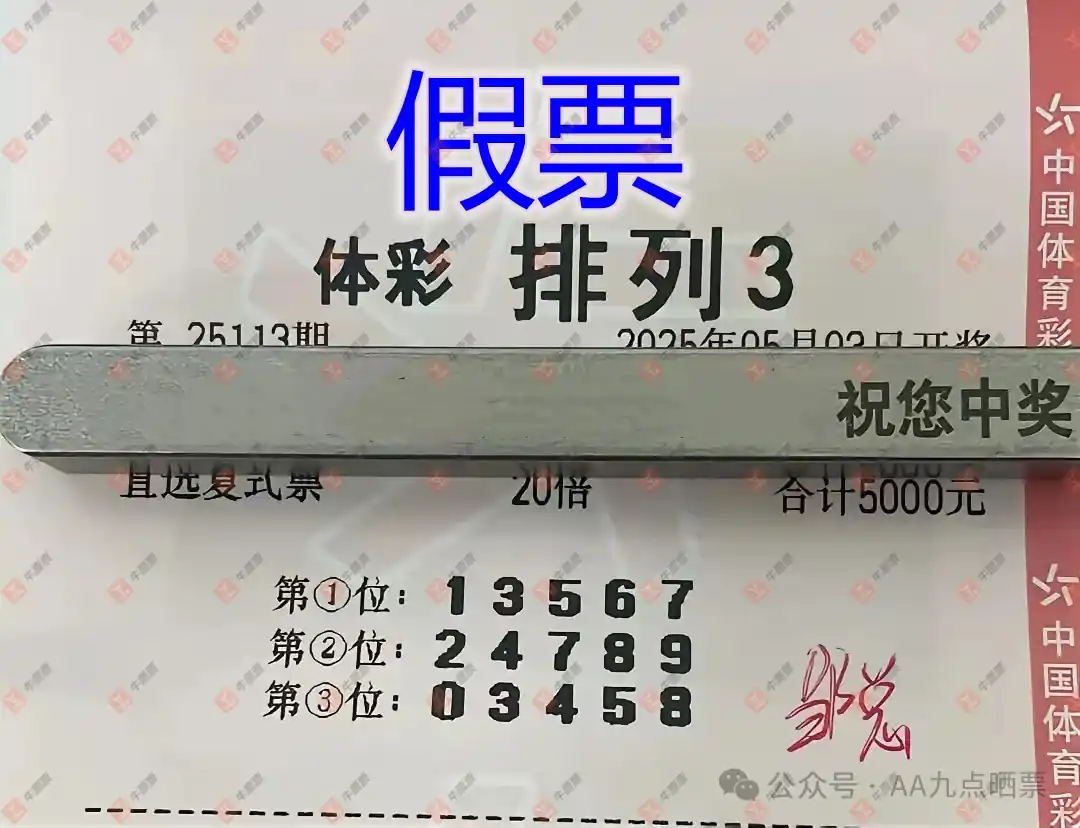 假票
体彩 排列3
第 25113期 2025年05月03日开奖
祝您中奖
直选复式票 20倍 合计5000元
第①位: 1 3 5 6 7
第②位: 2 4 7 8 9
第③位: 0 3 4 5 8
邹总
公众号 · AA九点晒票
中国体育彩
中国体育彩